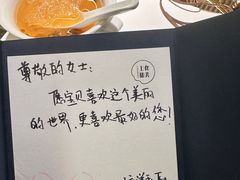 尊敬的女士：
愿宝贝喜欢这个美丽
的世界，更喜欢最好的您！